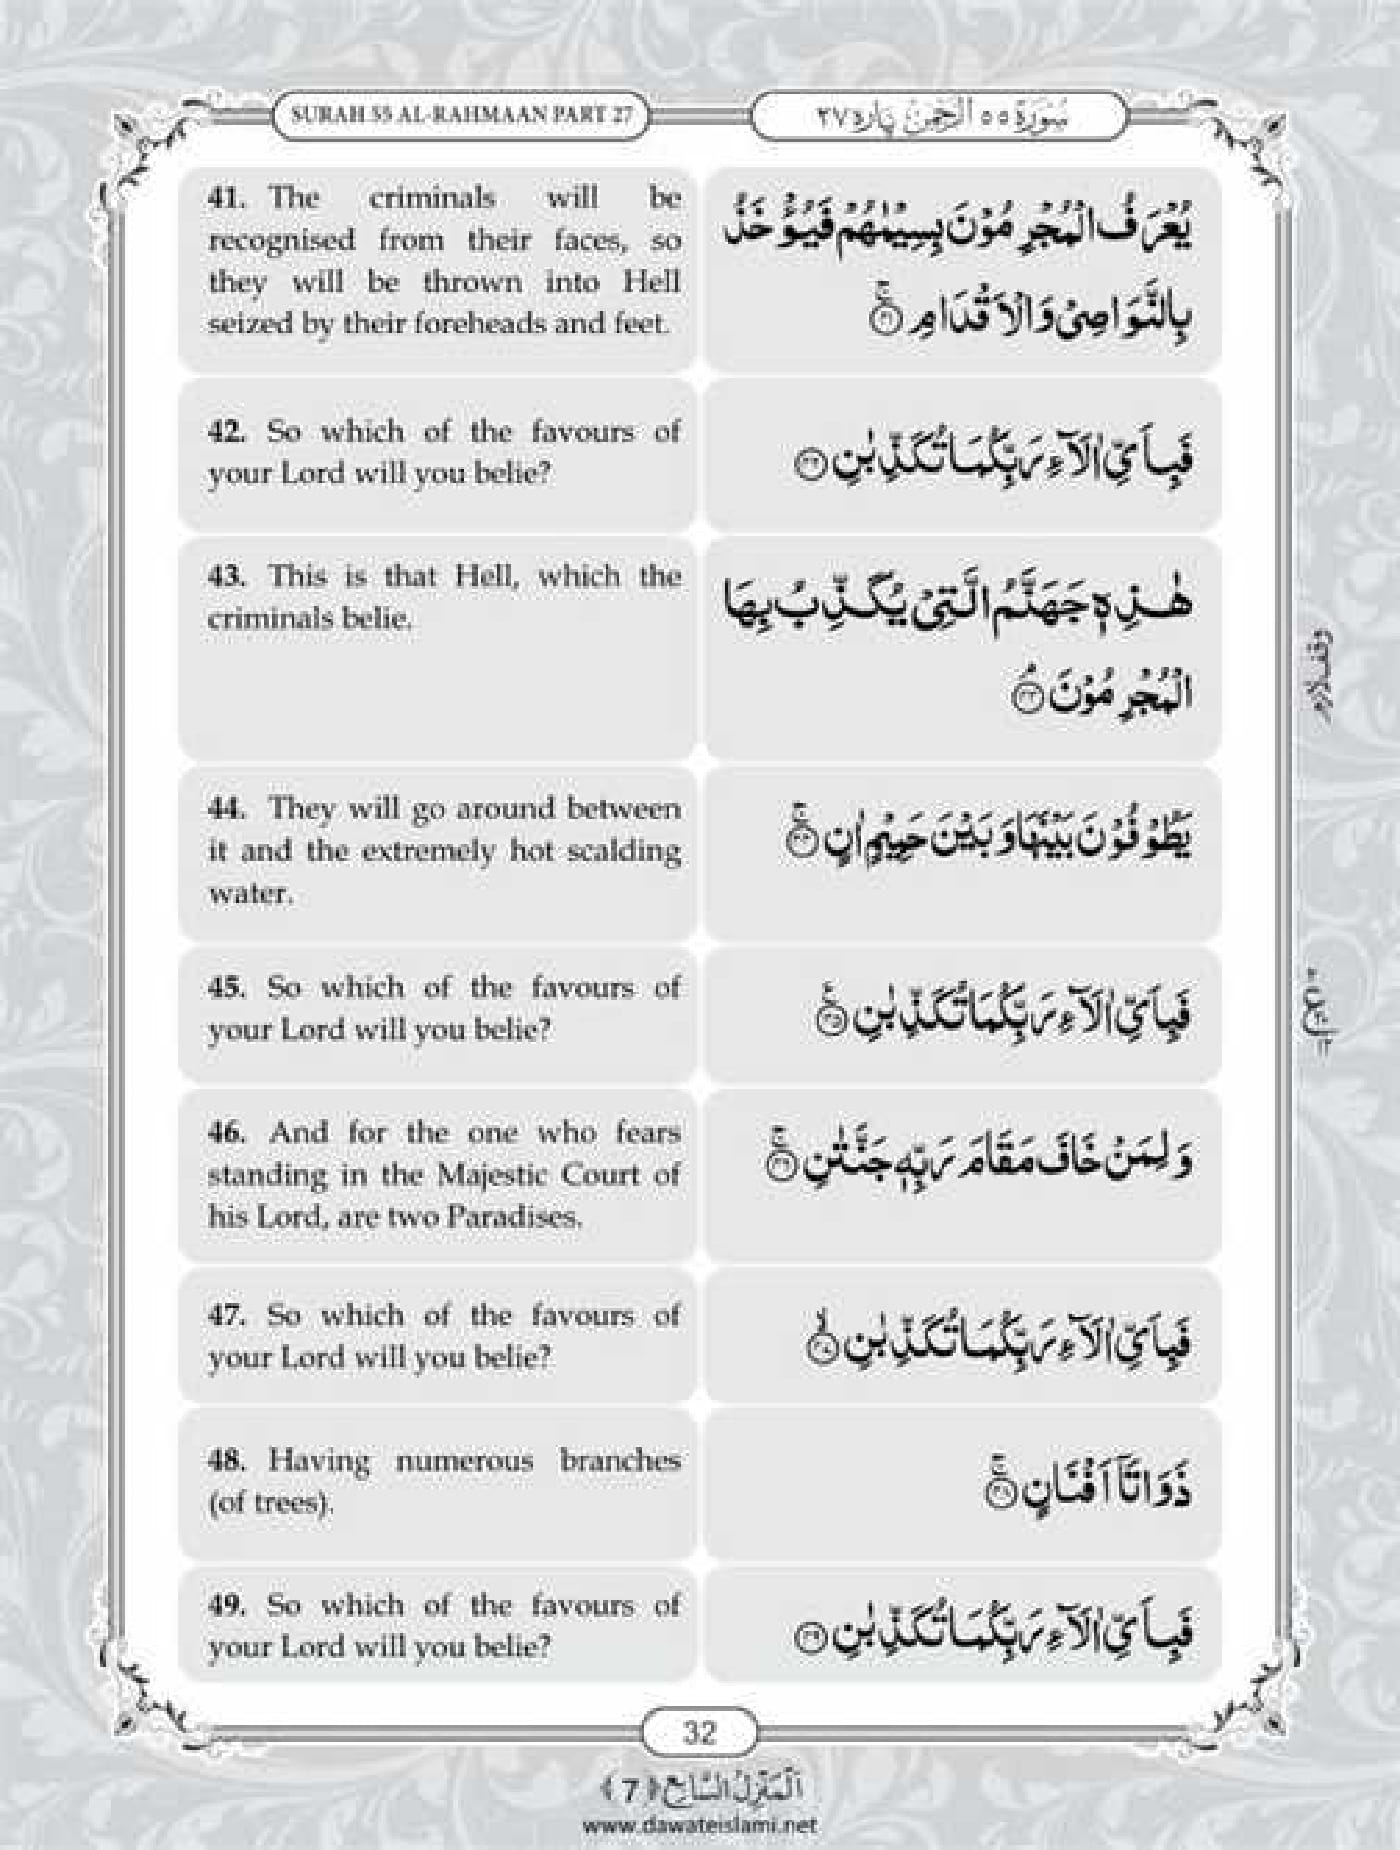 SURAH 55 AL-RAHMAAN PART 27
سُوْرَةُ ٥٥ اَلرَّحْمٰنُ پاره ٢٧
41. The criminals will be
recognised from their faces, so
they will be thrown into Hell
seized by their foreheads and feet.
يُعْرَفُ الْمُجْرِمُوْنَ بِسِيْمٰىهُمْ فَيُؤْخَذُ
بِالنَّوَاصِیْ وَالْاَقْدَامِ ۚ﴿۴۱﴾
42. So which of the favours of
your Lord will you belie?
فَبِاَیِّ اٰلَآءِ رَبِّكُمَا تُكَذِّبٰنِ ﴿۴۲﴾
43. This is that Hell, which the
criminals belie.
هٰذِهٖ جَهَنَّمُ الَّتِیْ يُكَذِّبُ بِهَا
الْمُجْرِمُوْنَ ۘ﴿۴۳﴾
44. They will go around between
it and the extremely hot scalding
water.
يَطُوْفُوْنَ بَيْنَهَا وَ بَيْنَ حَمِيْمٍ اٰنٍ ۚ﴿۴۴﴾
45. So which of the favours of
your Lord will you belie?
فَبِاَیِّ اٰلَآءِ رَبِّكُمَا تُكَذِّبٰنِ ﴿۴۵﴾
46. And for the one who fears
standing in the Majestic Court of
his Lord, are two Paradises.
وَ لِمَنْ خَافَ مَقَامَ رَبِّهٖ جَنَّتٰنِ ۚ﴿۴۶﴾
47. So which of the favours of
your Lord will you belie?
فَبِاَیِّ اٰلَآءِ رَبِّكُمَا تُكَذِّبٰنِ ۙ﴿۴۷﴾
48. Having numerous branches
(of trees).
ذَوَاتَاۤ اَفْنَانٍ ۚ﴿۴۸﴾
49. So which of the favours of
your Lord will you belie?
فَبِاَیِّ اٰلَآءِ رَبِّكُمَا تُكَذِّبٰنِ ﴿۴۹﴾
وقف لازم
32
اَلْمَنْزِلُ السَّابِع ﴿7﴾
www.dawateislami.net